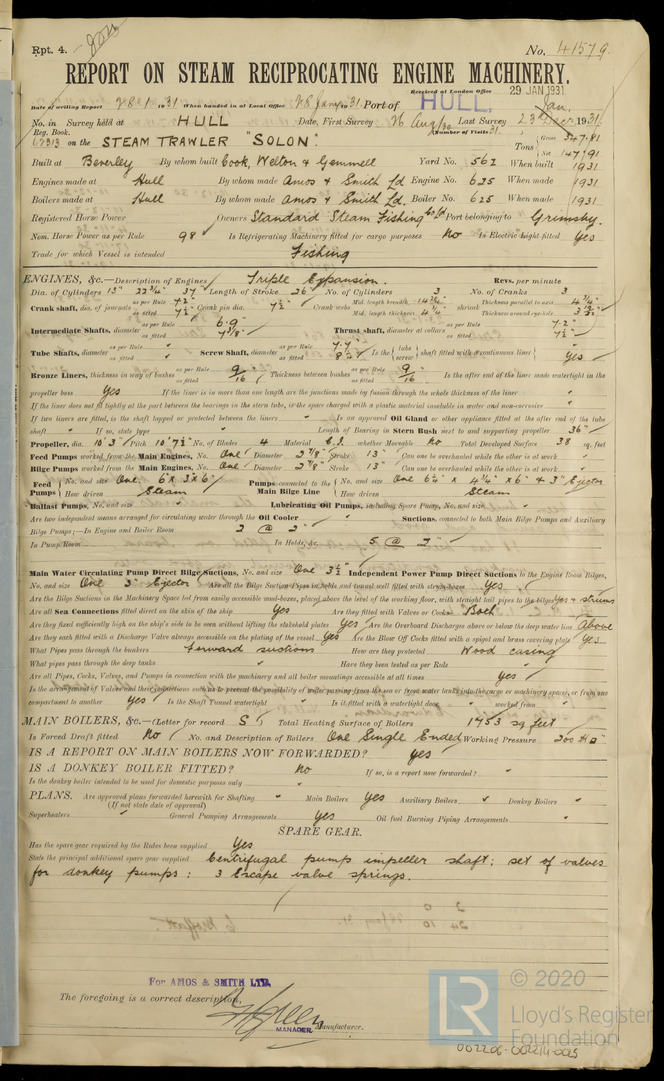 Rpt. 4.
No. 41579.
REPORT ON STEAM RECIPROCATING ENGINE MACHINERY.
Received at London Office 29 JAN 1931
Date of writing Report 28 1 1931 When handed in at Local Office 28 Jany 1931 Port of HULL.
No. in Survey held at HULL Date, First Survey 26 Aug/30 Last Survey 23 Jan. 1931
Reg. Book. Number of Visits 31
62313 on the STEAM TRAWLER "SOLON". Tons Gross 347.81 Net 147.91
Built at Beverley By whom built Cook, Welton & Gemmell Yard No. 562 When built 1931
Engines made at Hull By whom made Amos & Smith Ld. Engine No. 625 When made 1931
Boilers made at Hull By whom made Amos & Smith Ld. Boiler No. 625 When made 1931
Registered Horse Power Owners Standard Steam Fishing Co Ld Port belonging to Grimsby.
Nom. Horse Power as per Rule 98 Is Refrigerating Machinery fitted for cargo purposes No Is Electric Light fitted Yes
Trade for which Vessel is intended Fishing
ENGINES, &c.—Description of Engines Triple Expansion. Revs. per minute
Dia. of Cylinders 13" 22 3/4" 37 Length of Stroke 26" No. of Cylinders 3 No. of Cranks 3
Crank shaft, dia. of journals as per Rule 7.2" as fitted 7 1/2" Crank pin dia. 7 1/2" Crank webs Mid. length breadth 14 3/4" Mid. length thickness 4 3/4" shrunk Thickness parallel to axis 4 3/4" Thickness around eye-hole
Intermediate Shafts, diameter as per Rule 6.9 as fitted 7 3/8" Thrust shaft, diameter at collars as per Rule 7.2" as fitted 7 1/2"
Tube Shafts, diameter as per Rule " as fitted " Screw Shaft, diameter as per Rule 7.7 as fitted Is the tube screw shaft fitted with a continuous liner Yes
Bronze Liners, thickness in way of bushes as per Rule as fitted 9/16" Thickness between bushes as per Rule as fitted 9/16" Is the after end of the liner made watertight in the
propeller boss Yes If the liner is in more than one length are the junctions made by fusion through the whole thickness of the liner "
If the liner does not fit tightly at the part between the bearings in the stern tube, is the space charged with a plastic material insoluble in water and non-corrosive "
If two liners are fitted, is the shaft lapped or protected between the liners " Is an approved Oil Gland or other appliance fitted at the after end of the tube
shaft " If so, state type " Length of Bearing in Stern Bush next to and supporting propeller 36"
Propeller, dia. 10' 3" Pitch 10' 7 1/2" No. of Blades 4 Material C.I. whether Moveable No Total Developed Surface 38 sq. feet
Feed Pumps worked from the Main Engines, No. One Diameter 2 7/8" Stroke 13" Can one be overhauled while the other is at work "
Bilge Pumps worked from the Main Engines, No. One Diameter 2 7/8" Stroke 13" Can one be overhauled while the other is at work "
Feed Pumps No. and size One, 6" x 3 x 6" How driven Steam Pumps connected to the Main Bilge Line No. and size One 6 1/4" x 4 1/4" x 6" & 3" Ejector How driven Steam
Ballast Pumps, No. and size " Lubricating Oil Pumps, including Spare Pump, No. and size "
Are two independent means arranged for circulating water through the Oil Cooler " Suctions, connected to both Main Bilge Pumps and Auxiliary
Bilge Pumps;—In Engine and Boiler Room 2 @ 2"
In Pump Room In Holds, &c. 5 @ 2"
Main Water Circulating Pump Direct Bilge Suctions, No. and size One 3 1/2 Independent Power Pump Direct Suctions to the Engine Room Bilges,
No. and size One 3" Ejector Are all the Bilge Suction Pipes in holds and tunnel well fitted with strum-boxes Yes
Are the Bilge Suctions in the Machinery Space led from easily accessible mud-boxes, placed above the level of the working floor, with straight tail pipes to the bilges Yes & strums
Are all Sea Connections fitted direct on the skin of the ship Yes Are they fitted with Valves or Cocks Both
Are they fixed sufficiently high on the ship's side to be seen without lifting the stokehold plates Yes Are the Overboard Discharges above or below the deep water line Above
Are they each fitted with a Discharge Valve always accessible on the plating of the vessel Yes Are the Blow Off Cocks fitted with a spigot and brass covering plate Yes
What Pipes pass through the bunkers Forward suctions How are they protected Wood casing
What pipes pass through the deep tanks " Have they been tested as per Rule "
Are all Pipes, Cocks, Valves, and Pumps in connection with the machinery and all boiler mountings accessible at all times Yes
Is the arrangement of Valves and their connections such as to prevent the possibility of water passing from the sea or from water tanks into the cargo or machinery spaces, or from one
compartment to another Yes Is the Shaft Tunnel watertight " Is it fitted with a watertight door " worked from "
MAIN BOILERS, &c.—(Letter for record S) Total Heating Surface of Boilers 1753 sq feet
Is Forced Draft fitted No No. and Description of Boilers One Single Ended Working Pressure 200 lb □"
IS A REPORT ON MAIN BOILERS NOW FORWARDED? Yes
IS A DONKEY BOILER FITTED? No If so, is a report now forwarded? "
Is the donkey boiler intended to be used for domestic purposes only
PLANS. Are approved plans forwarded herewith for Shafting " Main Boilers Yes Auxiliary Boilers " Donkey Boilers "
(If not state date of approval)
Superheaters " General Pumping Arrangements Yes Oil fuel Burning Piping Arrangements "
SPARE GEAR.
Has the spare gear required by the Rules been supplied Yes
State the principal additional spare gear supplied Centrifugal pump impeller shaft; set of valves
for donkey pumps: 3 Escape valve springs.
For AMOS & SMITH LTD.
The foregoing is a correct description,
MANAGER Manufacturer.
© 2020
LR
Lloyd's Register
Foundation
002206-002214-0015